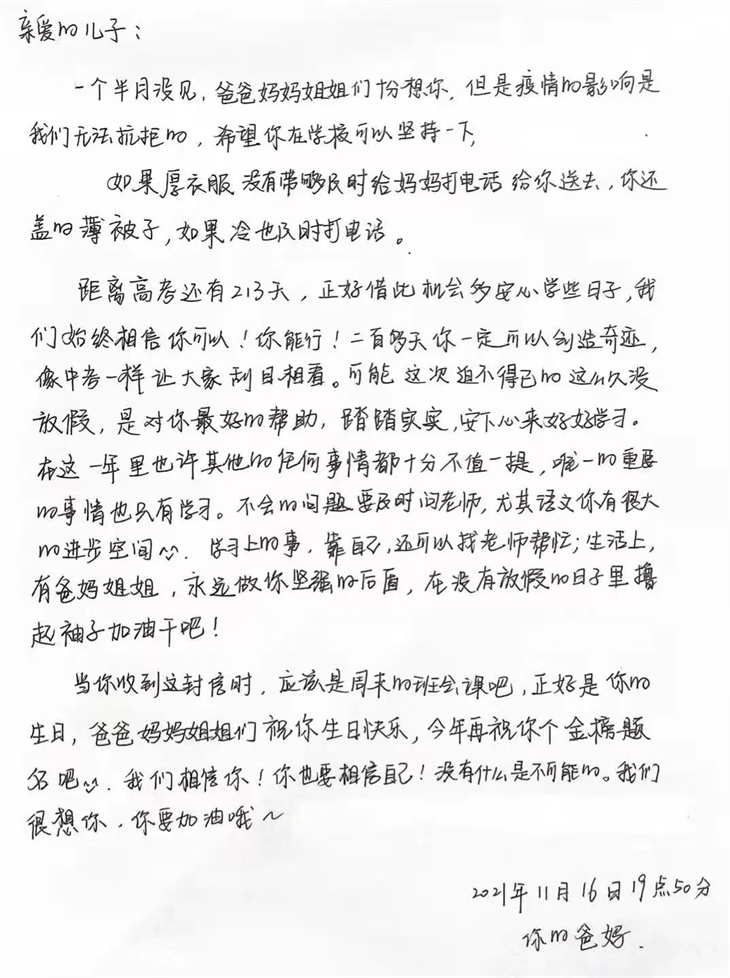 亲爱的儿子：
一个半月没见，爸爸妈妈姐姐们十份想你，但是疫情的影响是
我们无法抗拒的，希望你在学校可以坚持一下，
如果厚衣服没有带够及时给妈妈打电话给你送去，你还
盖的薄被子，如果冷也及时打电话。
距离高考还有213天，正好借此机会多安心学些日子，我
们始终相信你可以！你能行！二百多天你一定可以创造奇迹，
像中考一样让大家刮目相看。可能这次迫不得已的这么久没
放假，是对你最好的帮助，踏踏实实，安下心来好好学习。
在这一年里也许其他的任何事情都十分不值一提，唯一的重要
的事情也只有学习。不会的问题要及时问老师，尤其语文你有很大
的进步空间。学习上的事，靠自己，还可以找老师帮忙；生活上，
有爸妈姐姐，永远做你坚强的后盾，在没有放假的日子里撸
起袖子加油干吧！
当你收到这封信时，应该是周末的班会课吧，正好是你的
生日，爸爸妈妈姐姐们祝你生日快乐，今年再祝你个金榜题
名吧。我们相信你！你也要相信自己！没有什么是不可能的。我们
很想你，你要加油哦～
2021年11月16日19点50分
你的爸妈.